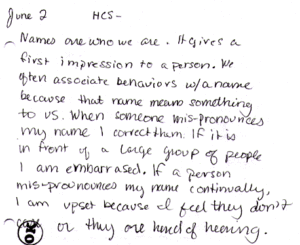 June 2 HCS-
Names are who we are. It gives a
first impression to a person. We
often associate behaviors w/a name
because that name means something
to us. When someone mis-pronounces
my name I correct them. If it is
in front of a large group of people
I am embarrased. If a person
mis-pronounces my name continually,
I am upset because I feel they don't
or they are hard of hearing.